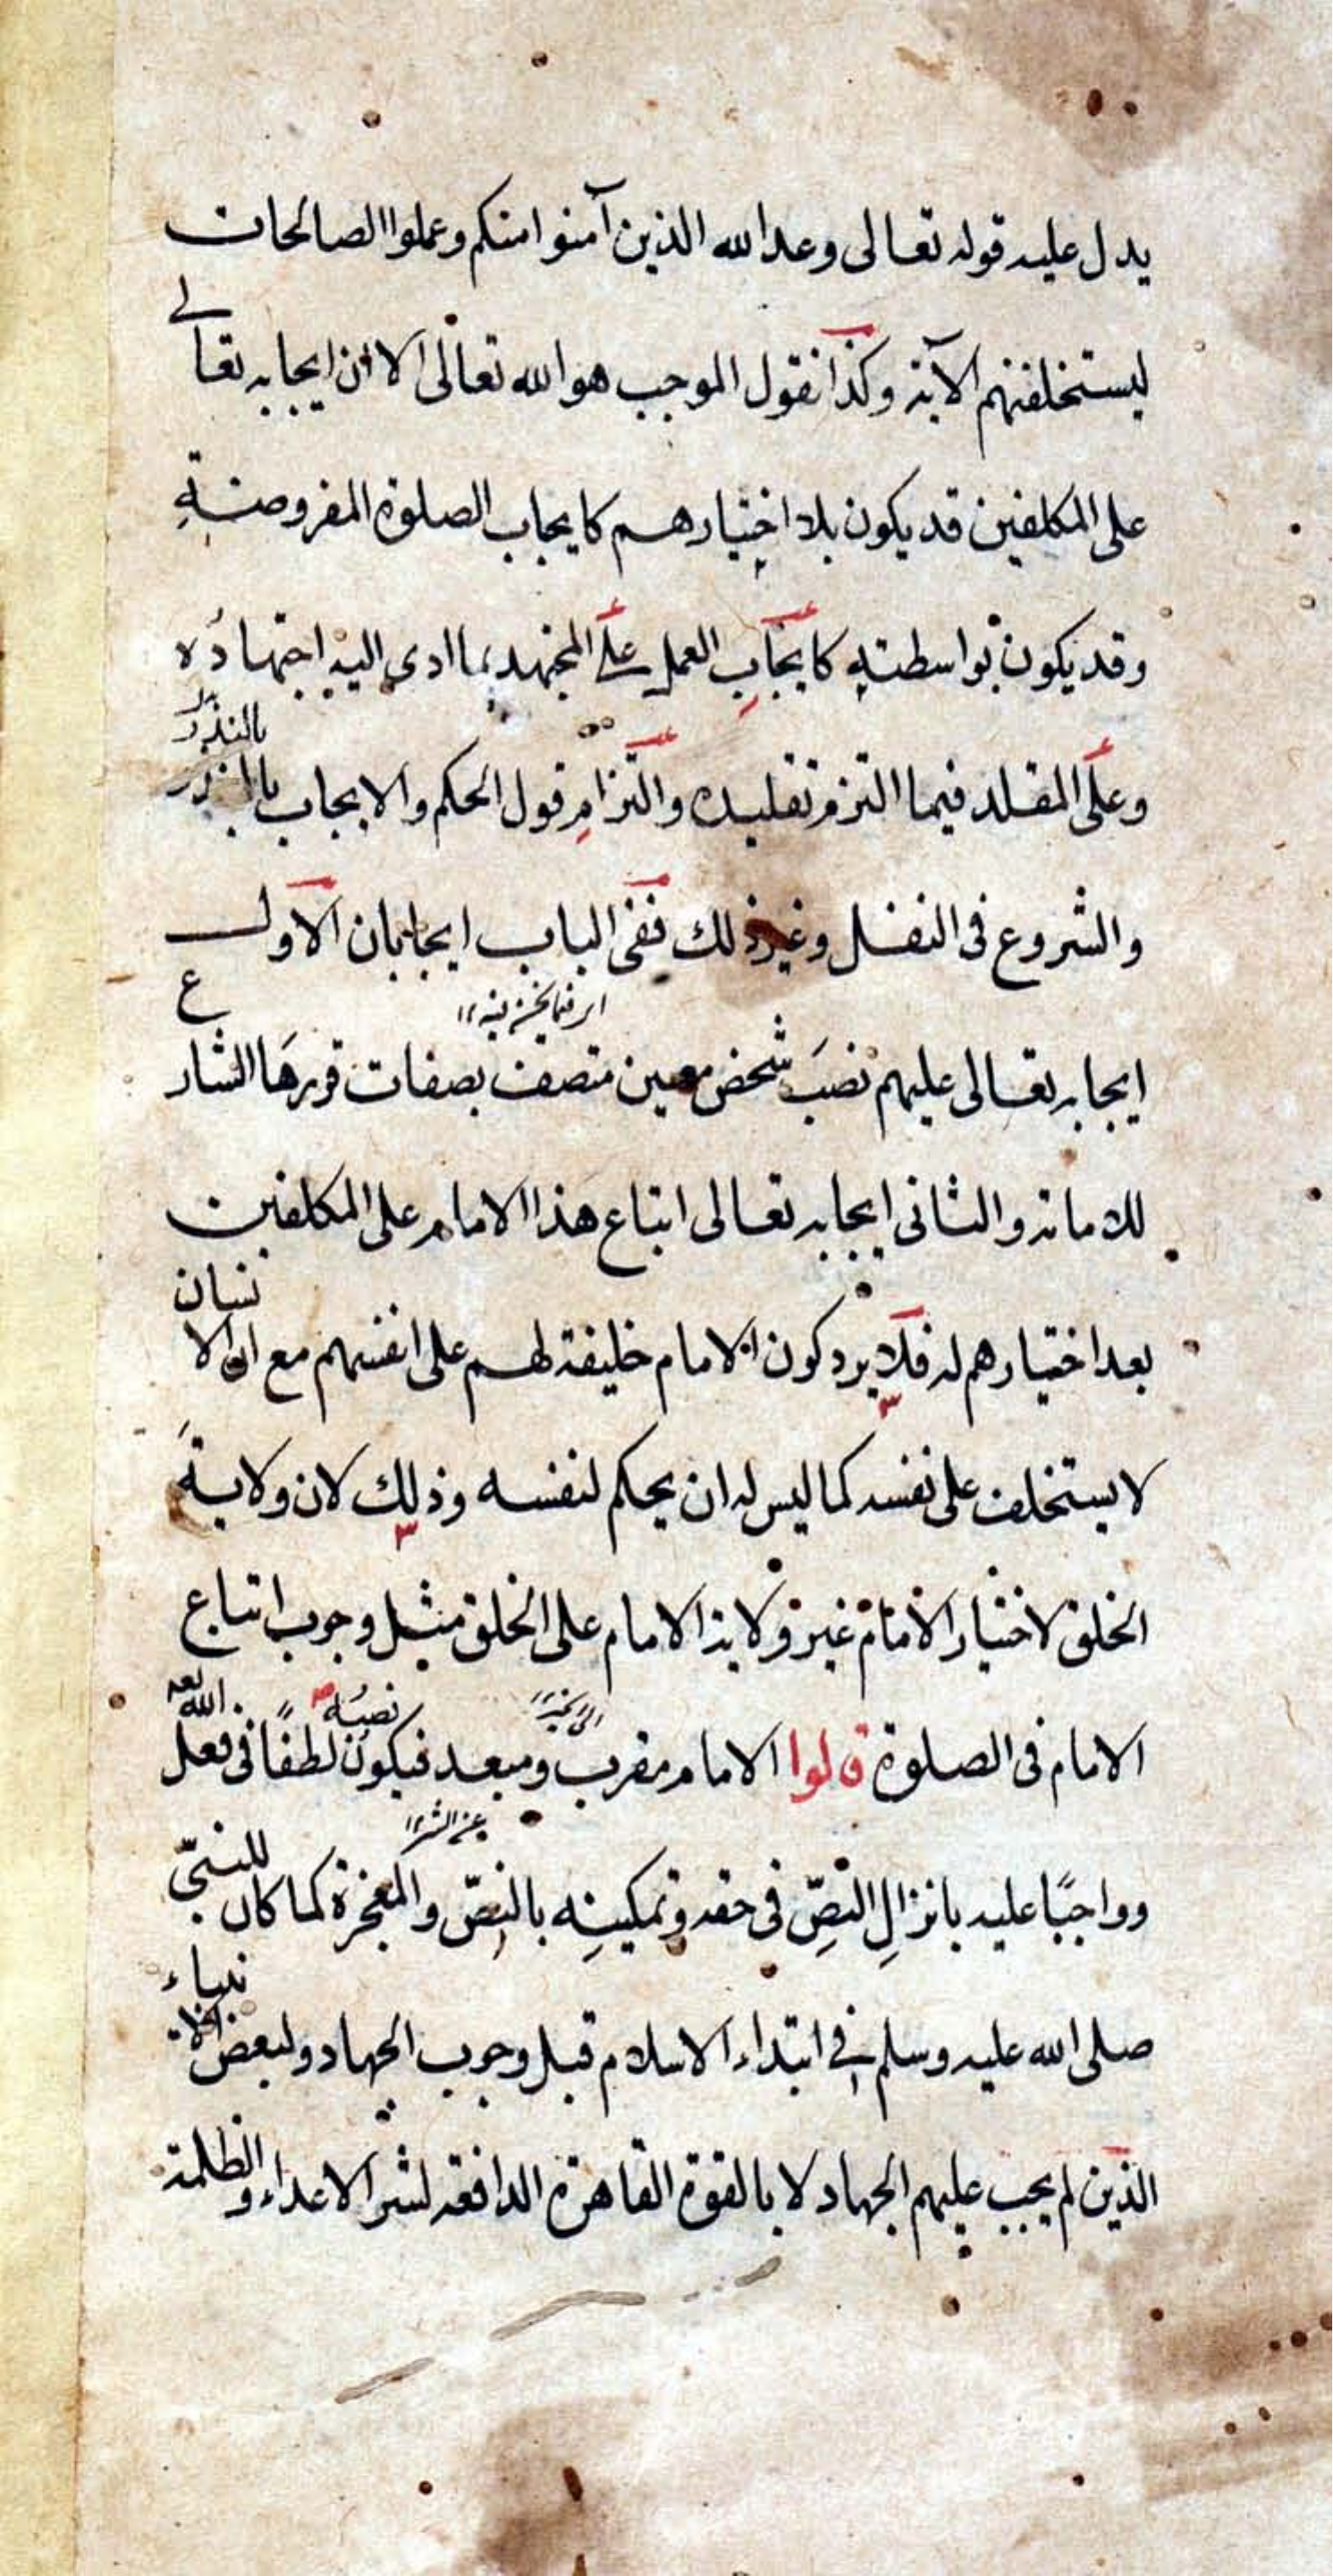 يدل عليه قوله تعالى وعد الله الذين آمنوا منكم وعملوا الصالحات
ليستخلفنهم الآية وكذا نقول الموجب هو الله تعالى الا ان ايجابه تعالى
على المكلفين قد يكون بلا اختيارهم كايجاب الصلوة المفروضة
وقد يكون بواسطته كايجاب العمل على المجتهد بما ادى اليه اجتهاده
وعلى المقلد فيما التزم تقليده والتزام قول الحكم والايجاب بالنذر
والشروع في النفل وغير ذلك ففي الباب ايجابان الاول
ايجابه تعالى عليهم نصب شخص معين متصف بصفات قررها الشارع
للامامة والثاني ايجابه تعالى اتباع هذا الامام على المكلفين
بعد اختيارهم له فلا يرد كون الامام خليفة لهم على انفسهم مع ان الانسان
لا يستخلف على نفسه كما ليس له ان يحكم لنفسه وذلك لان ولاية
الخلق لاختيار الامام غير ولاية الامام على الخلق مثل وجوب اتباع
الامام في الصلوة قالوا الامام مقرب ومبعد فيكون نصبه لطفًا في فعل الله تعه
الى الخير
عن الشر
وواجبًا عليه بانزال النصّ في حقه وتمكينه بالنصّ والمعجزة كما كان للنبيّ
صلى الله عليه وسلم في ابتداء الاسلام قبل وجوب الجهاد ولبعض الانبياء
الذين لم يجب عليهم الجهاد لا بالقوة القاهرة الدافعة لشر الاعداء والظلمة